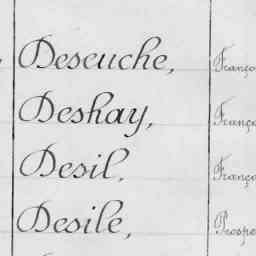 Deseuche, Franço
Deshay, Franço
Desil, Franço
Desile, Prospe